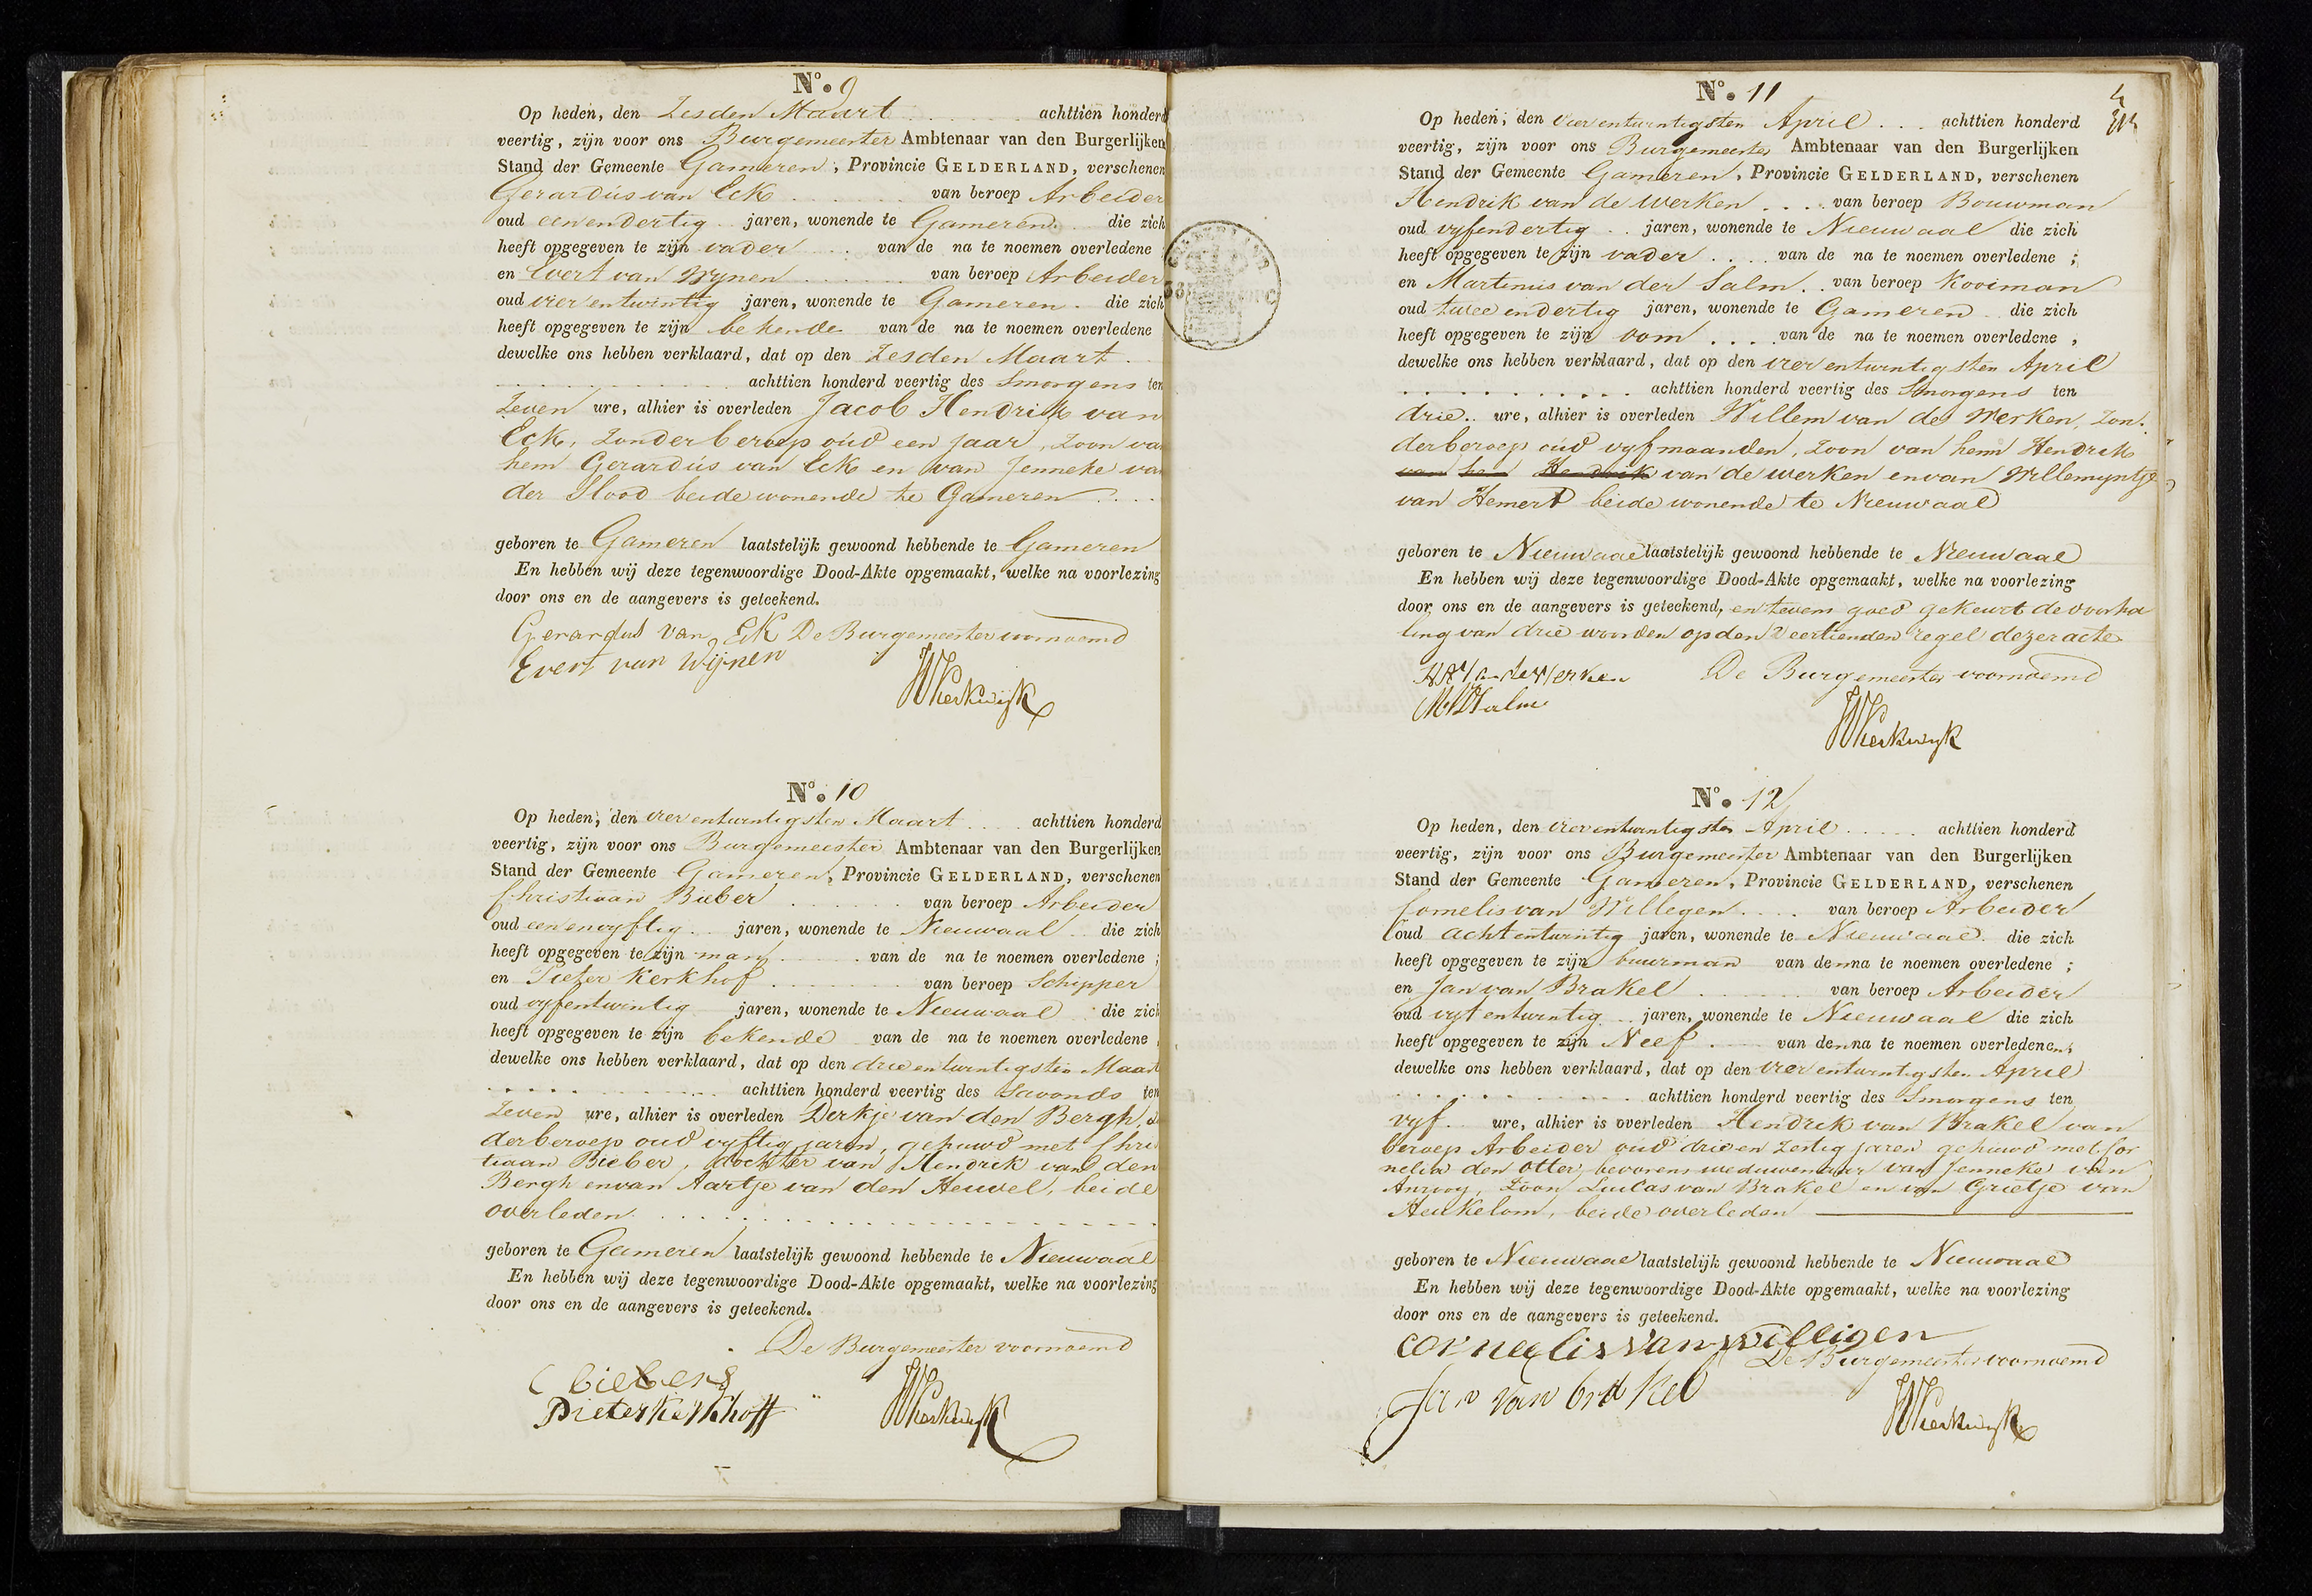 No. 9
Op heden, den Zesden Maart achttien honderd
veertig, zijn voor ons Burgemeester Ambtenaar van den Burgerlijken
Stand der Gemeente Gameren, Provincie GELDERLAND, verschenen
Gerardus van Eck van beroep Arbeider
oud eenendertig jaren, wonende te Gameren die zich
heeft opgegeven te zijn vader van de na te noemen overledene
en Evert van Wynen van beroep Arbeider
oud vier entwintig jaren, wonende te Gameren die zich
heeft opgegeven te zijn bekende van de na te noemen overledene
dewelke ons hebben verklaard, dat op den Zesden Maart
achttien honderd veertig des Smorgens ten
Zeven ure, alhier is overleden Jacob Hendrik van
Eck, Zonder beroep oud een jaar, Zoon van
hem Gerardus van Eck en van Jenneke van
der Slood beide wonende te Gameren
geboren te Gameren laatstelijk gewoond hebbende te Gameren
En hebben wij deze tegenwoordige Dood-Akte opgemaakt, welke na voorlezing
door ons en de aangevers is geteekend.
Gerardus van Eck De Burgemeester voornoemd
Evert van Wijnen
Kerkwijk
No. 10
Op heden, den vier entwintigsten Maart achttien honderd
veertig, zijn voor ons Burgemeester Ambtenaar van den Burgerlijken
Stand der Gemeente Gameren, Provincie GELDERLAND, verschenen
Christiaan Bieber van beroep Arbeider
oud eenenvyftig jaren, wonende te Nieuwaal die zich
heeft opgegeven te zijn man van de na te noemen overledene ;
en Pieter Kerkhof van beroep Schipper
oud vyfentwintig jaren, wonende te Nieuwaal die zich
heeft opgegeven te zijn bekende van de na te noemen overledene
dewelke ons hebben verklaard, dat op den drie entwintigsten Maart
achttien honderd veertig des Savonds ten
Zeven ure, alhier is overleden Derkje van den Bergh,
derberoep oud vyftig jaren, gehuwd met Chris
tiaan Bieber, dochter van Hendrik van den
Bergh envan Aartje van den Heuvel, beide
overleden
geboren te Gameren laatstelijk gewoond hebbende te Nieuwaal
En hebben wij deze tegenwoordige Dood-Akte opgemaakt, welke na voorlezing
door ons en de aangevers is geteekend.
De Burgemeester voornoemd
C biebers
Pieter Kerkhoff Kerkwijk
4
No. 11
Op heden, den vier entwintigsten April achttien honderd
veertig, zijn voor ons Burgemeester Ambtenaar van den Burgerlijken
Stand der Gemeente Gameren, Provincie GELDERLAND, verschenen
Hendrik van de Werken van beroep Bouwman
oud vyfendertig jaren, wonende te Nieuwaal die zich
heeft opgegeven te zijn vader van de na te noemen overledene ;
en Martinus van der Salm van beroep Kooiman
oud twee endertig jaren, wonende te Gameren die zich
heeft opgegeven te zijn oom van de na te noemen overledene ,
dewelke ons hebben verklaard, dat op den vier entwintigsten April
achttien honderd veertig des Smorgens ten
drie ure, alhier is overleden Willem van de Werken, Zon.
derberoep oud vyf maanden, Zoon van hem Hendrik
van hem Hendrik van de werken envan Willemyntje
van Hemert beide wonende te Nieuwaal
geboren te Nieuwaal laatstelijk gewoond hebbende te Nieuwaal
En hebben wij deze tegenwoordige Dood-Akte opgemaakt, welke na voorlezing
door ons en de aangevers is geteekend, en tevens goed gekeurt de voorha
ling van drie woorden op den Veertienden regel dezer acte
H van de Werken De Burgemeester voornoemd
M V D Salm
Kerkwijk
No. 12
Op heden, den vier entwintigsten April achttien honderd
veertig, zijn voor ons Burgemeester Ambtenaar van den Burgerlijken
Stand der Gemeente Gameren, Provincie GELDERLAND, verschenen
Cornelis van Willegen van beroep Arbeider
oud acht entwintig jaren, wonende te Nieuwaal die zich
heeft opgegeven te zijn buurman van denna te noemen overledene ;
en Jan van Brakel van beroep Arbeider
oud vyf entwintig jaren, wonende te Nieuwaal die zich
heeft opgegeven te zijn Neef van denna te noemen overledenen,
dewelke ons hebben verklaard, dat op den vier entwintigsten April
achttien honderd veertig des Smorgens ten
vyf ure, alhier is overleden Hendrik van Brakel van
beroep Arbeider oud drie en Zestig jaren gehuwd met Cor
nelia den Otter, bevorens weduwenaar van Jenneke van
Anrooy, Zoon Lucas van Brakel en van Grietje van
Heukelom, beide overleden
geboren te Nieuwaal laatstelijk gewoond hebbende te Nieuwaal
En hebben wij deze tegenwoordige Dood-Akte opgemaakt, welke na voorlezing
door ons en de aangevers is geteekend.
cornelis van willigen
De Burgemeester voornoemd
Jan van brakel
Kerkwijk